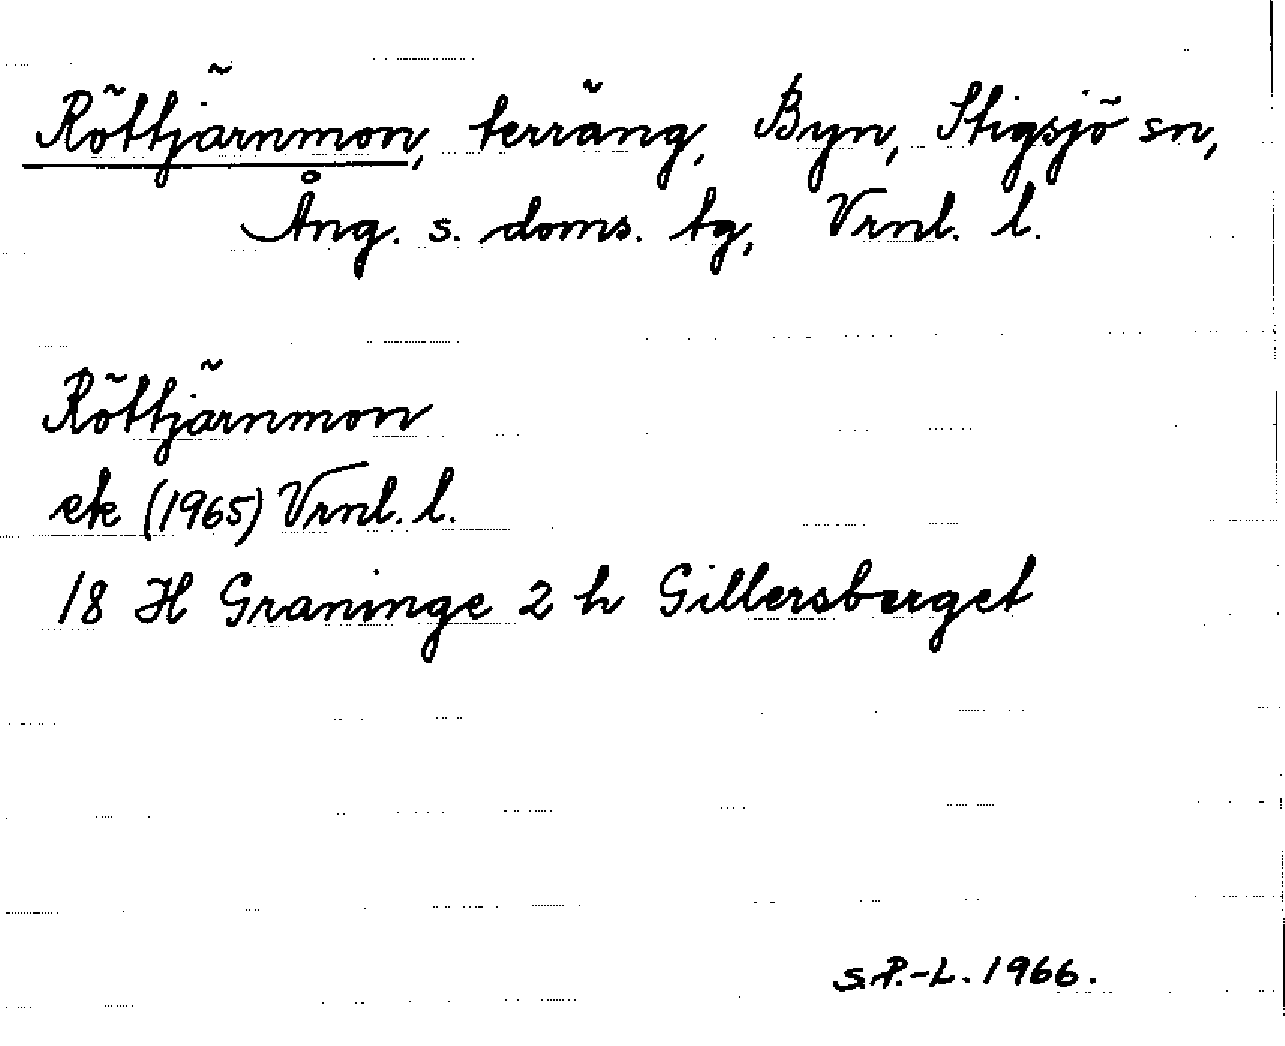 Röttjärnmon, terräng, Byn, Stigsjö sn,
Ång. s. doms. tg, Vrnl. l.
Röttjärnmon
ek (1965) Vrnl. l.
18 H Graninge 2 h Gillersberget
S.P.-L. 1966.